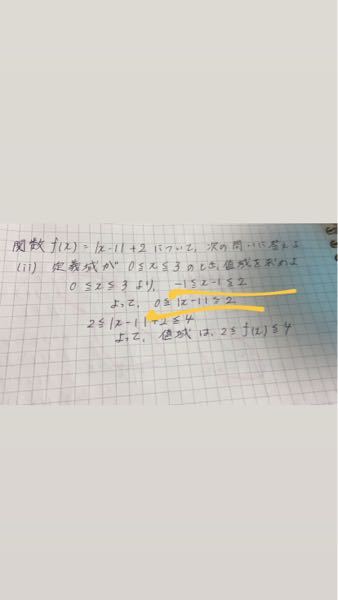 関数 f(x) = |x-1| + 2 について、次の問いに答えよ
(ii) 定義域が 0 ≦ x ≦ 3 のとき、値域を求めよ
0 ≦ x ≦ 3 より、 -1 ≦ x-1 ≦ 2
よって、 0 ≦ |x-1| ≧ 2
2 ≦ |x-1| + 2 ≦ 4
よって、 値域は、2 ≦ f(x) ≦ 4